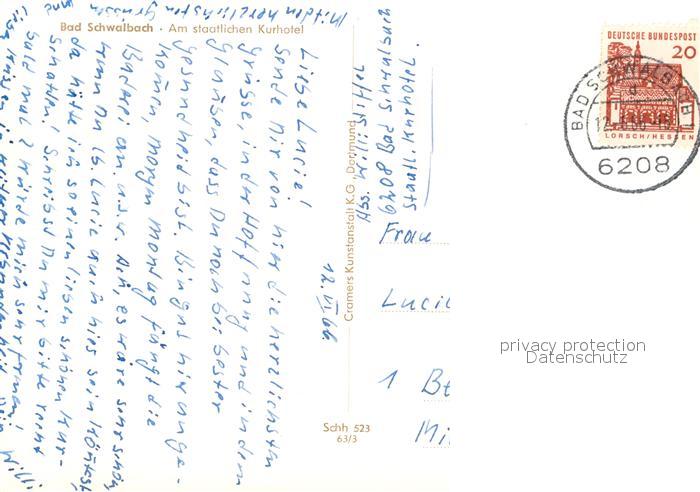 Bad Schwalbach · Am staatlichen Kurhotel
Mit den herzlichsten Grüssen
12. VI 66
Liebe Lucie!
Sende Dir von hier die herzlichsten
Grüsse in der Hoffnung und in dem
Glauben dass Du noch bei bester
Gesundheid bist. Bin gns hir ange-
komen, morgen Montag fängt die
Baderei an. u.s.w. Ach, es wäre so schön
wenn Du lb. Lucie auch hier sein könntest
da hätt ich so einen lieben schönen Kur-
schatten! Schreibst Du mir bitte recht
bald mal? Würde mich sehr freuen!
Willi
Abs. Willi Stiffel
6208 Bad Schwalbach
Staatl. Kurhotel.
Cramers Kunstanstalt K.G. Dortmund
Schh 523
63/3
DEUTSCHE BUNDESPOST
20
LORSCH/HESSEN
BAD SCHWALBACH
6208
Frau
Luci
1 Be
Mi
privacy protection
Datenschutz